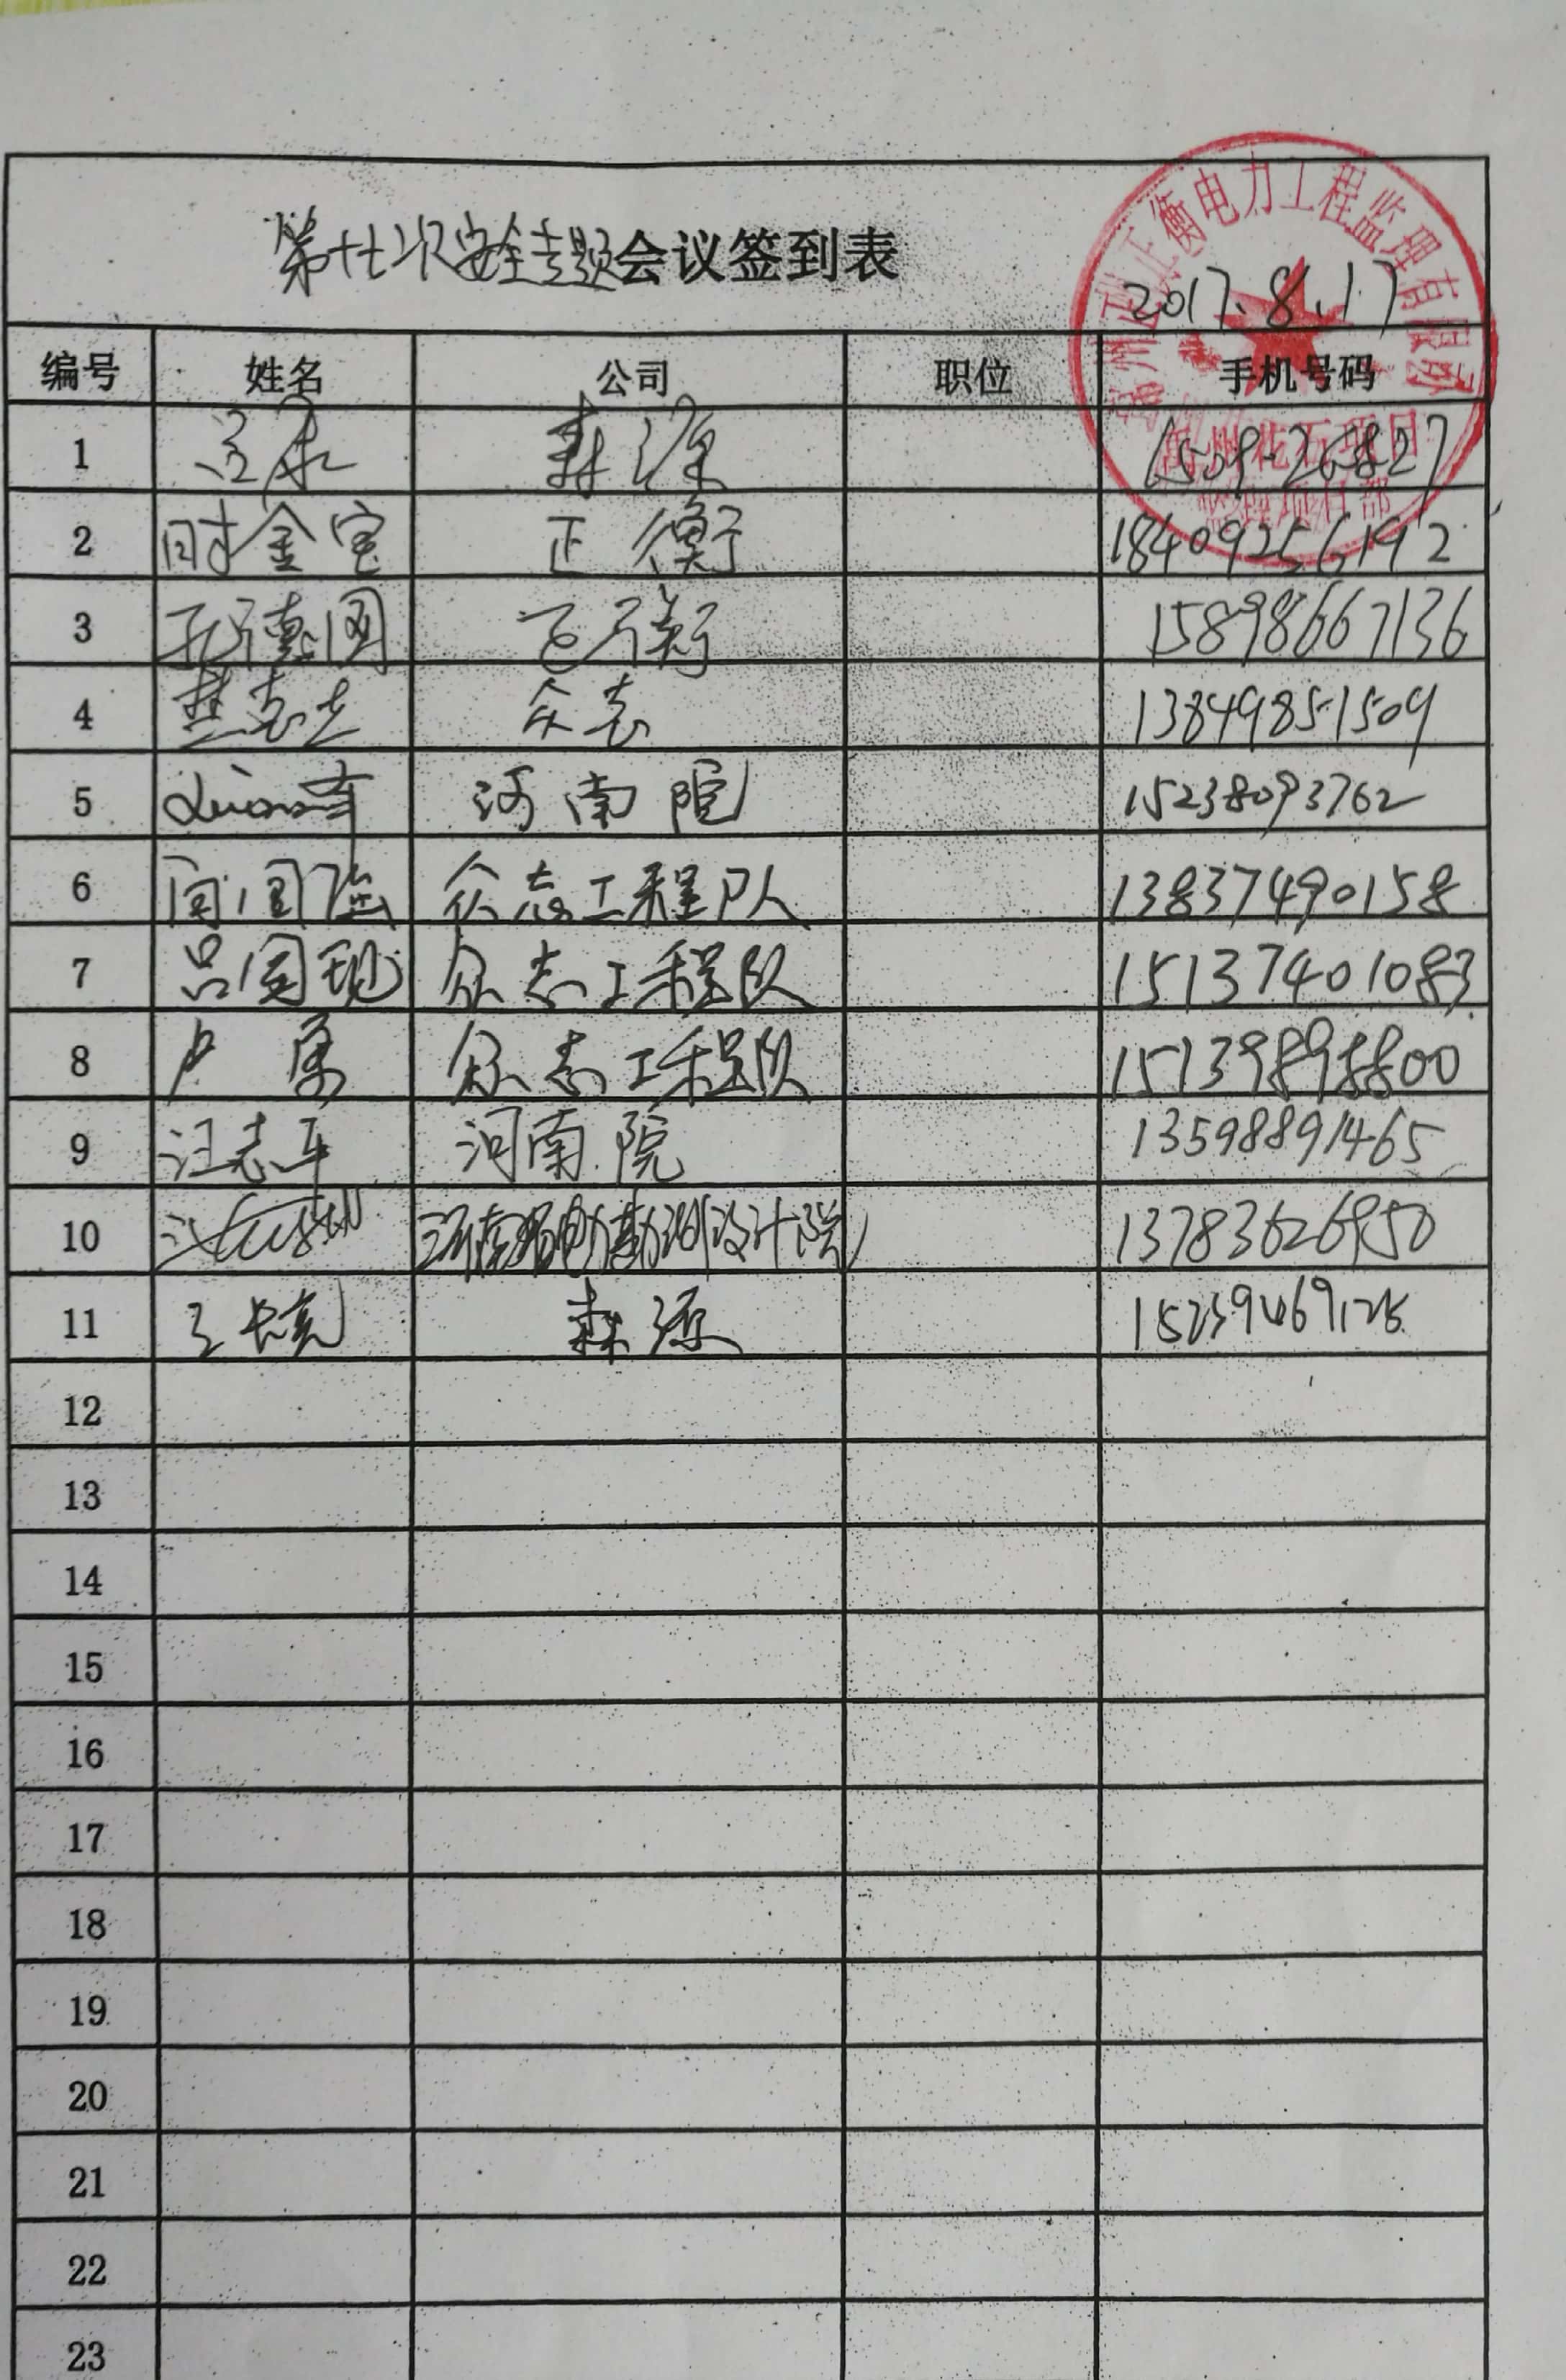 第十七次安全专题会议签到表
2017.8.17
编号 姓名 公司 职位 手机号码
1 森源
2 时金宝 正衡 18409256192
3 15898667136
4 13849851509
5 河南院 15238093762
6 众志工程队 13837490158
7 吕国现 众志工程队 15137401083
8 众志工程队 15139898800
9 汪志军 河南院 13598891465
10 河南省电力勘测设计院 13783626950
11 森源 15239469128
12
13
14
15
16
17
18
19
20
21
22
23